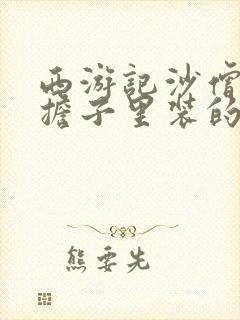 西游记沙僧
担子里装的
熊要先